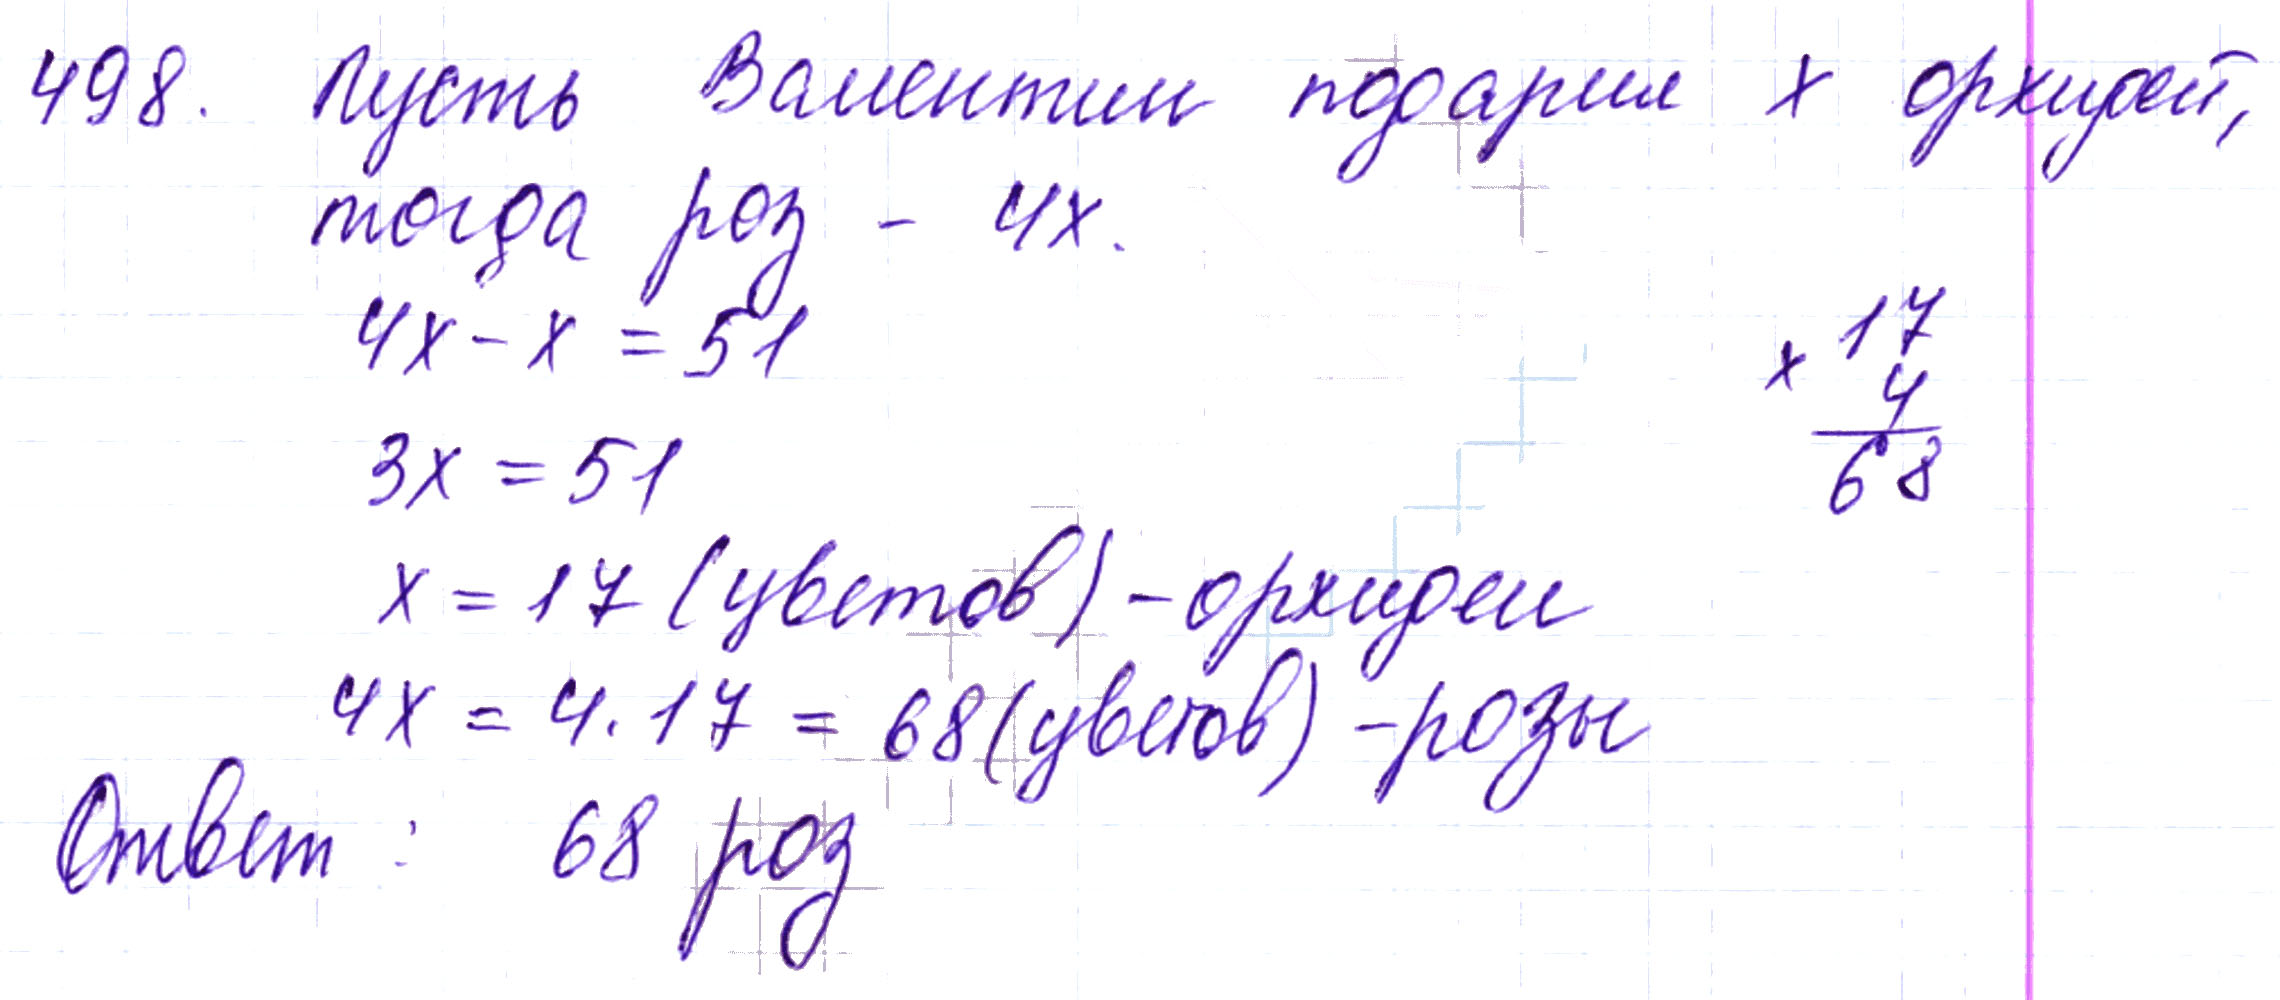 498. Пусть Валентин подарил x орхидей,
тогда роз - 4x.
4x - x = 51
3x = 51
x = 17 (цветов) - орхидеи
4x = 4 · 17 = 68 (цветов) - розы
Ответ: 68 роз
x 17
4
68